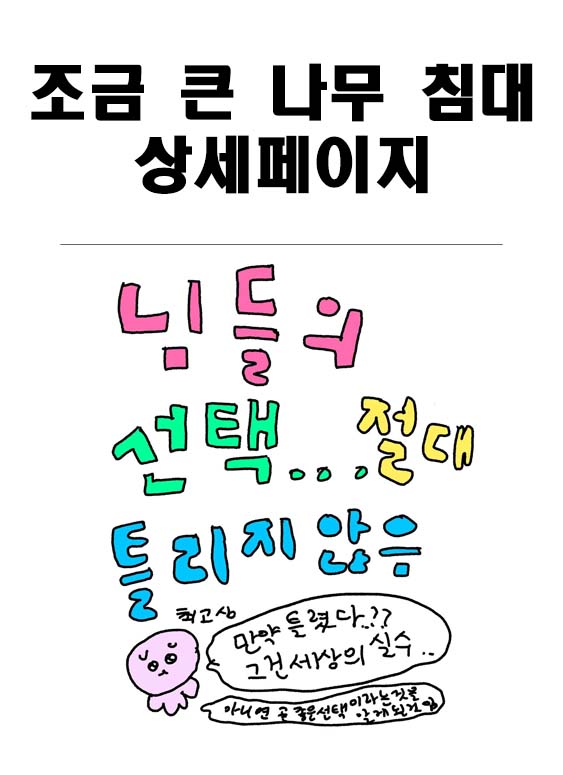 조금 큰 나무 침대
상세페이지
님들의
선택...절대
틀리지 않음
최고심
만약 틀렸다..??
그건 세상의 실수..
아니면 곧 좋은선택이라는것을
알게될것임